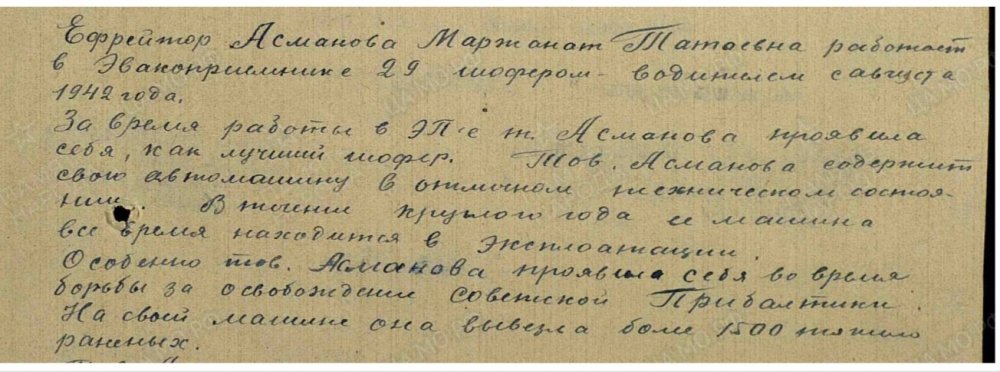 Ефрейтор Асманова Маржанат Татаевна работает
в Эвакоприемнике 29 шофером-водителем с августа
1942 года.
За время работы в ЭП-е т. Асманова проявила
себя, как лучший шофер. Тов. Асманова содержит
свою автомашину в отличном техническом состоя-
нии. В течении круглого года ее машина
все время находится в эксплоатации.
Особенно тов. Асманова проявила себя во время
борьбы за освобождение Советской Прибалтики.
На своей машине она вывезла более 1500 тяжело
раненых.